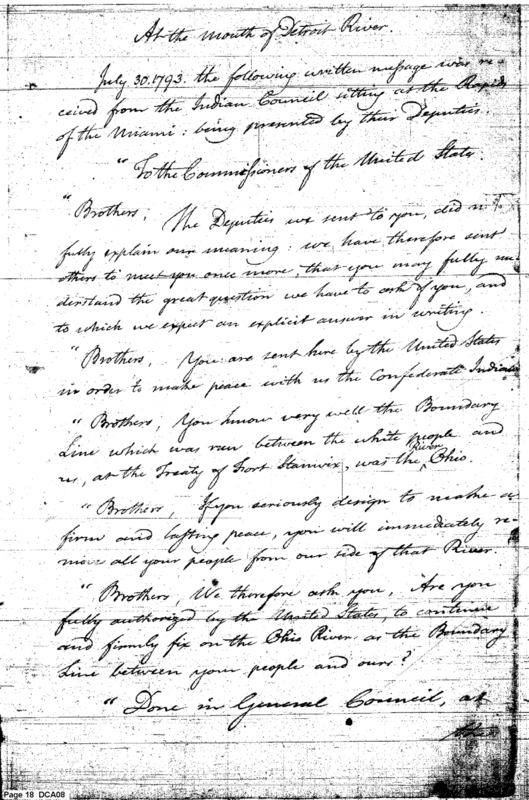 At the mouth of Detroit River.
July 30. 1793. the following written message was re-
ceived from the Indian Council sitting at the Rapids
of the Miami: being presented by their Deputies.
"To the Commissioners of the United States.
"Brothers, The Deputies we sent to you, did not
fully explain our meaning: we have therefore sent
others to meet you once more, that you may fully un-
derstand the great question we have to ask of you, and
to which we expect an explicit answer in writing.
"Brothers, You are sent here by the United States
in order to make peace with us the Confederate Indians
"Brothers, You know very well the Boundary
Line which was run between the white people and
us, at the Treaty of Fort Stanwix, was the River Ohio.
"Brothers, If you seriously design to make a
firm and lasting peace, you will immediately re-
move all your people from our side of that River.
"Brothers, We therefore ask you, Are you
fully authorized by the United States, to continue
and firmly fix on the Ohio River as the Boundary
Line between your people and ours?
"Done in General Council, at
Page 18 DCA08